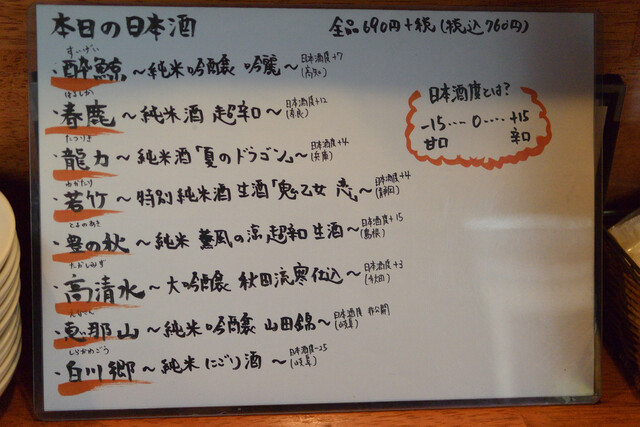 本日の日本酒 全品690円+税(税込760円)
すいげい
・酔鯨 〜純米吟醸 吟麗〜 日本酒度+7 (高知)
はるしか
・春鹿 〜純米酒 超辛口〜 日本酒度+12 (奈良)
たつりき
・龍力 〜純米酒「夏のドラゴン」〜 日本酒度+4 (兵庫)
わかたけ
・若竹 〜特別純米酒 生酒「鬼乙女 恋」〜 日本酒度+4 (静岡)
とよのあき
・豊の秋 〜純米 薫風の涼 超辛口 生酒〜 日本酒度+15 (島根)
たかしみず
・高清水 〜大吟醸 秋田流寒仕込〜 日本酒度+3 (秋田)
えなさん
・恵那山 〜純米吟醸 山田錦〜 日本酒度 非公開 (岐阜)
しらかわごう
・白川郷 〜純米 にごり酒 〜 日本酒度-25 (岐阜)
日本酒度とは?
-15‥‥0‥‥+15
甘口 辛口